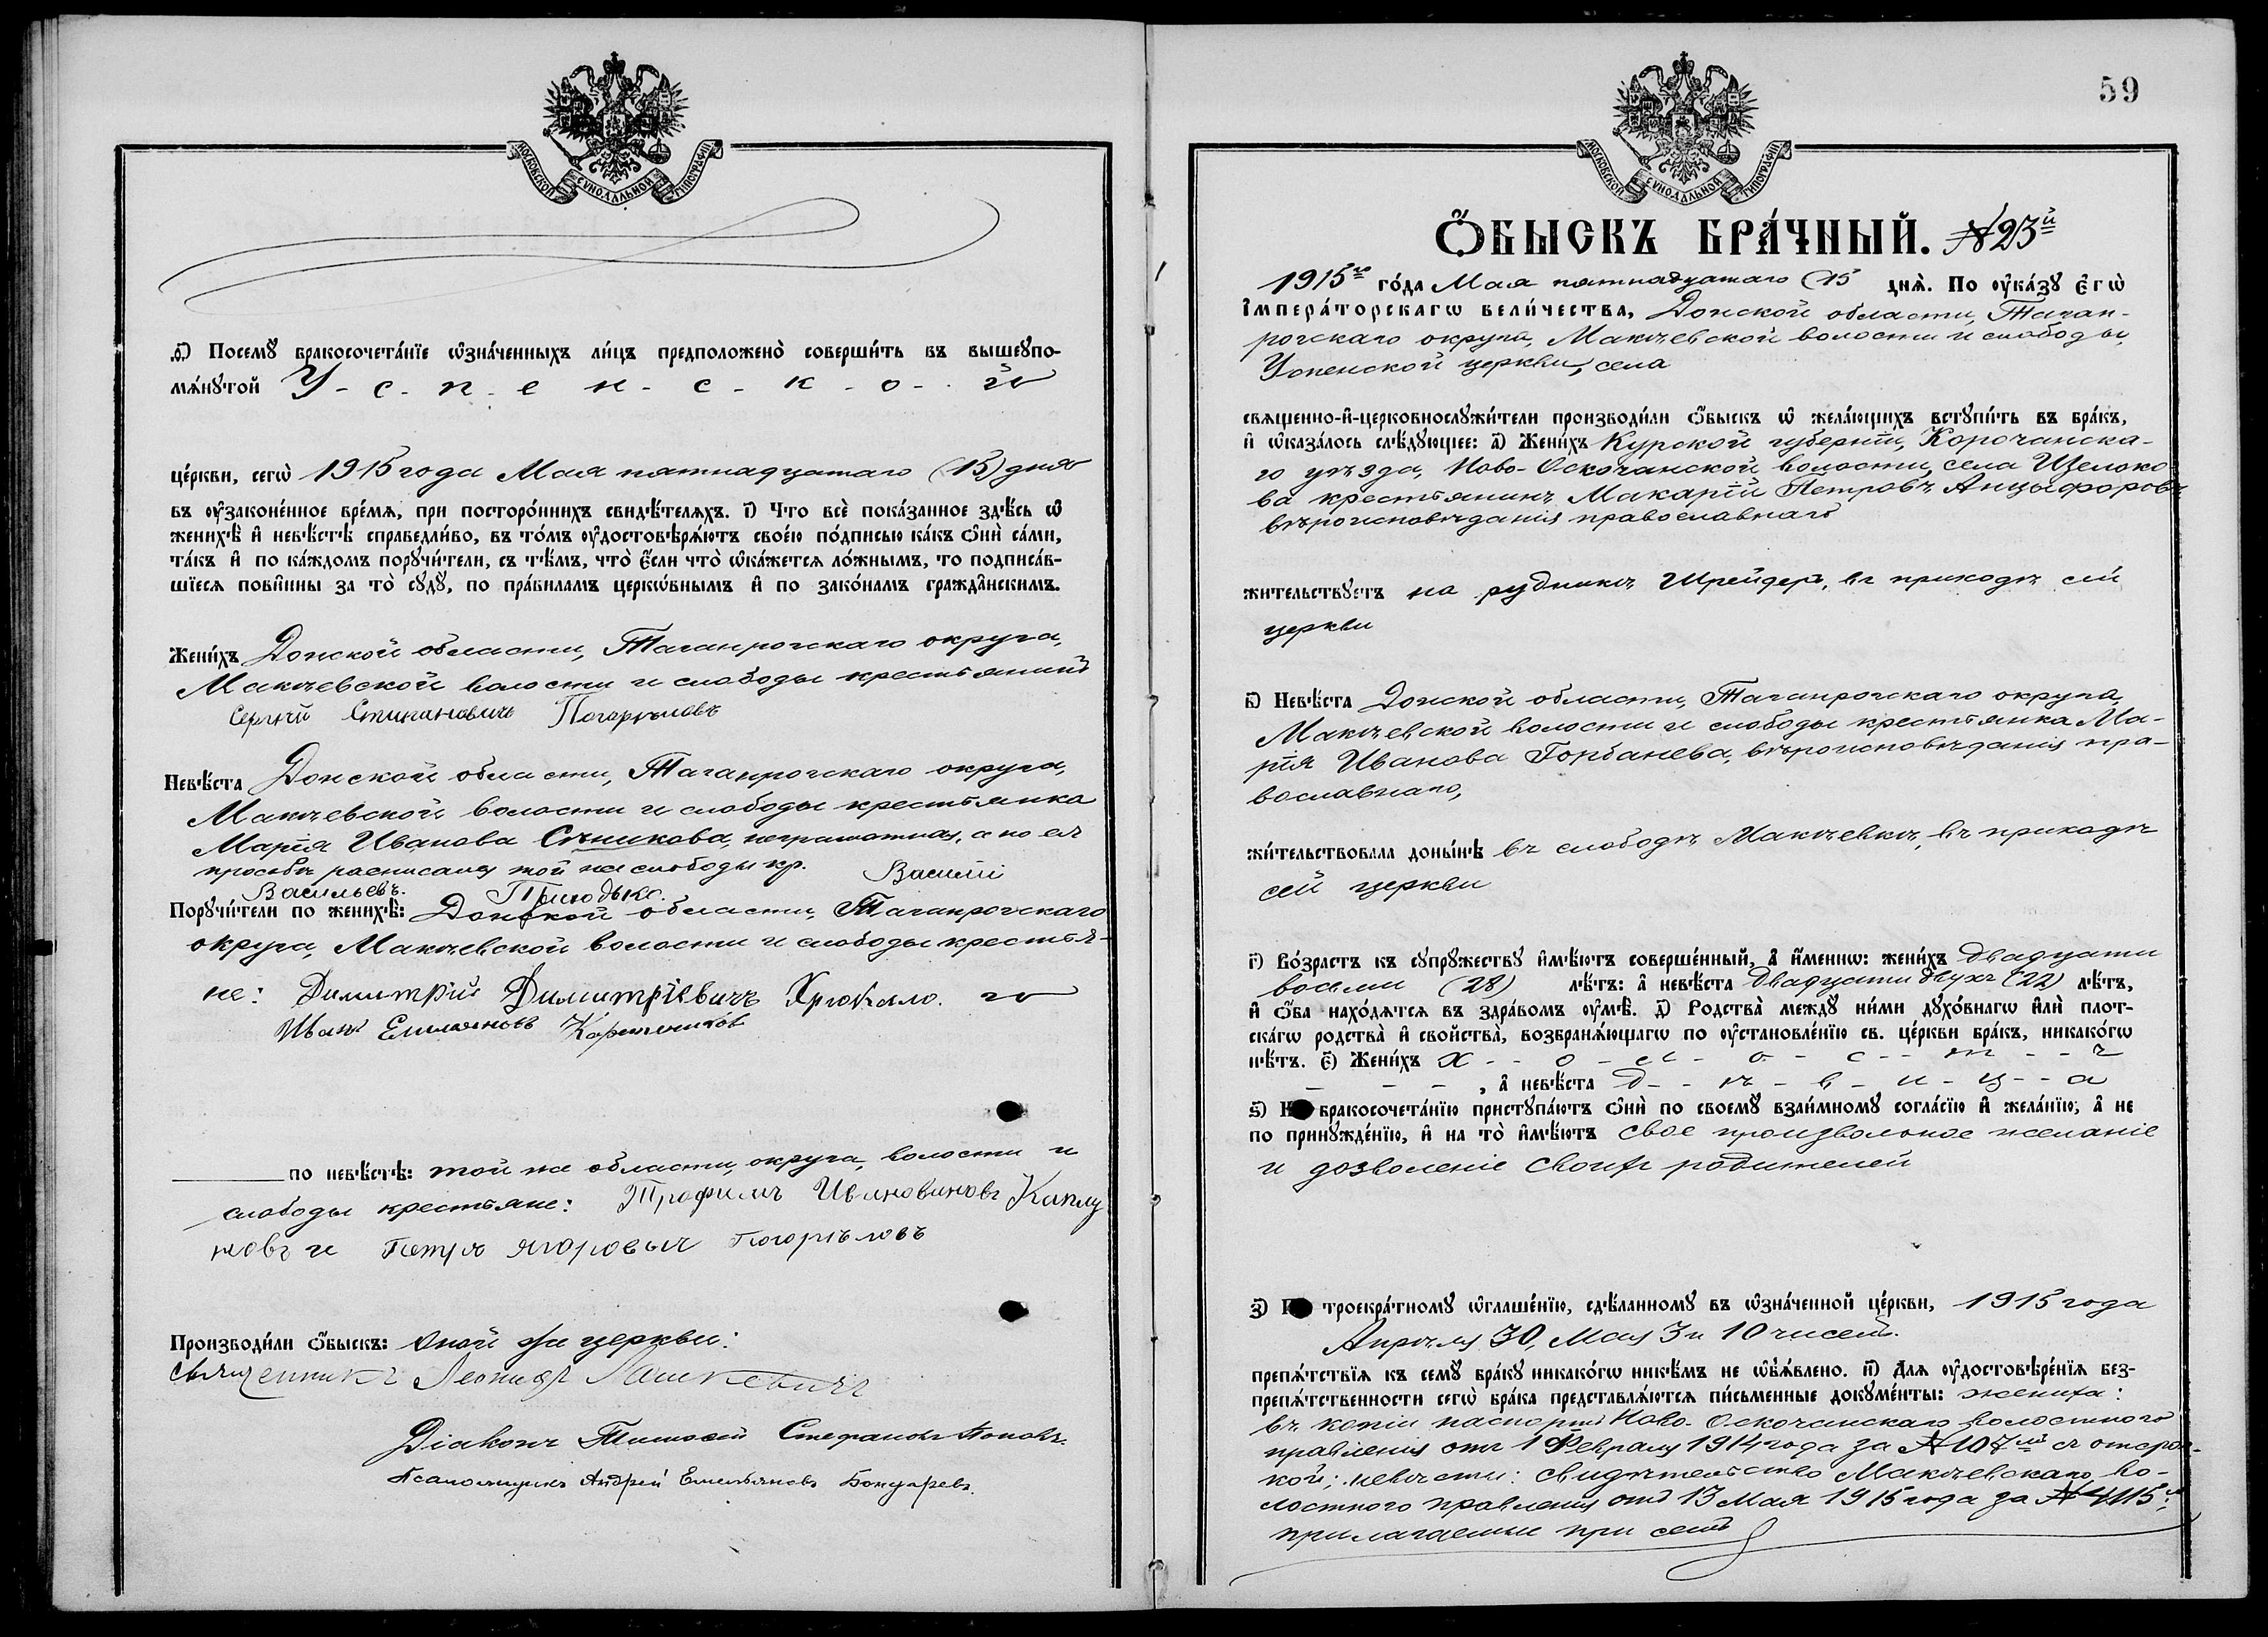 МОСКОВСКОЙ СУНОДАЛЬНОЙ ТИПОГРАФІИ
ѳ҃) Посемꙋ̀ бракосочета́нїе ѡ҆зна́ченныхъ ли́цъ предположено̀ соверши́ть въ вышеꙋпо-
мѧ́нꙋтой У - с - п - е - н - с - к - о - й
це́ркви, сегѡ̀ 1915 года Мая пятнадцатаго (15) дня
въ ᲂу҆законе́нное вре́мѧ, при посторо́ннихъ свидѣ́телѧхъ. і҃) Что всѐ пока́занное здѣ́сь ѡ҆
женихѣ̀ и҆ невѣ́стѣ справедли́во, въ то́мъ ᲂу҆достовѣрѧ́ютъ свое́ю по́дписью ка́къ ѻ҆нѝ са́ми,
та́къ и҆ по ка́ждомъ порꙋчи́тели, съ тѣ́мъ, что̀ є҆́сли что̀ ѡ҆ка́жется ло́жнымъ, то подписа́в-
шїеся пови́нны за то̀ сꙋдꙋ̀, по пра́виламъ церкѡ́внымъ и҆ по зако́намъ гражда̂нскимъ.
Жени́хъ Донской области, Таганрогскаго округа,
Макѣевской волости и слободы крестьянинъ
Сергѣй Стипановичь Погорѣловъ
Невѣ́ста Донской области, Таганрогскаго округа,
Макѣевской волости и слободы крестьянка
Марія Иванова Сѣникова, неграмотная, а по ея
просьбѣ росписался той же слободы кр. Василій
Васильевъ.
Порꙋчи́тели по женихѣ̀: Донской области, Таганрогскаго
округа, Макѣевской волости и слободы крестья-
не: Димитрій Димитріевичъ Хрюкало. и
Иванъ Емельяновъ
по невѣ́стѣ: той же области, округа, волости и
слободы крестьяне: Трофимъ Ивановичовъ Каплу
новъ и Петръ Ягоровыч Погорѣловъ
Производи́ли ѻ҆́быскъ: Оной же церкви:
священникъ Леонидъ
Діаконъ Тимофей Стефановъ Поповъ.
Псаломщикъ Андрей Емельяновъ Бондаревъ.
59
МОСКОВСКОЙ СУНОДАЛЬНОЙ ТИПОГРАФІИ
Ѻ҆́БЫСКЪ БРА́ЧНЫЙ. №23й
1915го го́да Мая пятнадцатаго (15 днѧ̀. По ᲂу҆ка́зꙋ Є҆гѡ̀
І҆мпера́торскагѡ вели́чества, Донской области, Таган-
рогскаго округа, Макѣевской волости и слободы,
Успенской церкви, села
священно-и҆-церковнослꙋжи́тели производи́ли ѻ҆́быскъ ѡ҆ жела́ющихъ встꙋпи́ть въ бра́къ,
и҆ ѡ҆каза́лось слѣ́дꙋющее: а҃) Жени́хъ Курской губерніи, Корочанска-
го уѣзда, Ново-Оскочанской волости, села Щелоко
ва крестьянинъ Макарій Петровъ Анцыфоровъ
вѣроисповѣданія православнаго
жи́тельствꙋетъ на рудникѣ Шрейдеръ, въ приходѣ сей
церкви
в҃) Невѣ́ста Донской области, Таганрогскаго округа,
Макѣевской волости и слободы крестьянка Ма-
рія Иванова Горбанева, вѣроисповѣданія пра-
вославнаго,
жи́тельствовала доны́нѣ въ слободѣ Макѣевкѣ, въ приходѣ
сей церкви
г҃) Во́зрастъ къ сꙋпрꙋ́жествꙋ и҆мѣ́ютъ соверше́нный, а҆ и҆́меннѡ: жени́хъ двадцати
восьми (28) лѣ́тъ: а҆ невѣ́ста двадцати двухъ (22) лѣ́тъ,
и҆ ѻ҆́ба нахо́дятся въ здра́вомъ ᲂу҆мѣ̀. д҃) Родства̀ междꙋ̀ ни́ми дꙋхо́внагѡ и҆лѝ плот-
ска́гѡ родства̀ и҆ свойства̀, возбранѧ́ющагѡ по ᲂу҆становле́нїю св. це́ркви бра́къ, никако́гѡ
нѣ́тъ. є҃) Жени́хъ х - - о - л - о - с - - т - - ъ
- - - , а҆ невѣ́ста д - - ѣ - в - и - ц - - а
ѕ҃) К бракосочета́нїю пристꙋпа́ютъ ѻ҆нѝ по своемꙋ̀ взаи́мномꙋ согла́сїю и҆ жела́нїю, а҆ не
по принꙋжде́нїю, и҆ на то̀ и҆мѣ́ютъ свое произвольное желаніе
и дозволеніе своихъ родителей
з҃) П троекра́тномꙋ ѡ҆глаше́нїю, сдѣ́ланномꙋ въ ѡ҆зна́ченной це́ркви, 1915 года
Апрѣля 30, Мая 3 и 10 чиселъ.
препѧ́тствїя къ семꙋ̀ бра́кꙋ никако́гѡ никѣ́мъ не ѡ҆б̾ѧ́влено. и҃) Для ᲂу҆достовѣре́нїя без-
препѧ́тственности сегѡ̀ бра́ка представлѧ́ются пи́сьменные докꙋме́нты: жениха:
въ копіи паспортъ Ново-Оскочанскаго волостного
правленія отъ 1 Февраля 1914 года за №107мъ съ отсроч-
кой; невѣсты: свидѣтельство Макѣевскаго во-
лостного правленія отъ 13 Мая 1915 года за №4115;
прилагаемые при семъ